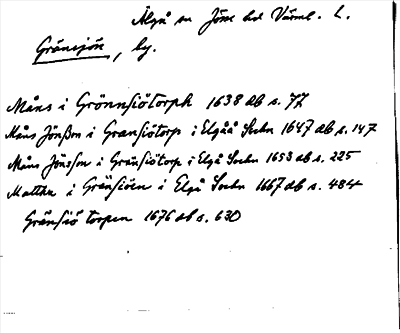 Älgå sn Jösse hd Värml. L.
Gränsjön, by.
Måns i Grönnsiötorph 1638 ab s. 77
Måns Jönsson i Gransiötorp i Elgåå Sochn 1647 ab s. 147
Måns Jönsson i Gränsiötorp i Elgå Sochn 1653 ab s. 225
Matthes i Gränsiön i Elgå Sochn 1667 ab s. 484
Gränsiö torpen 1676 ab s. 630